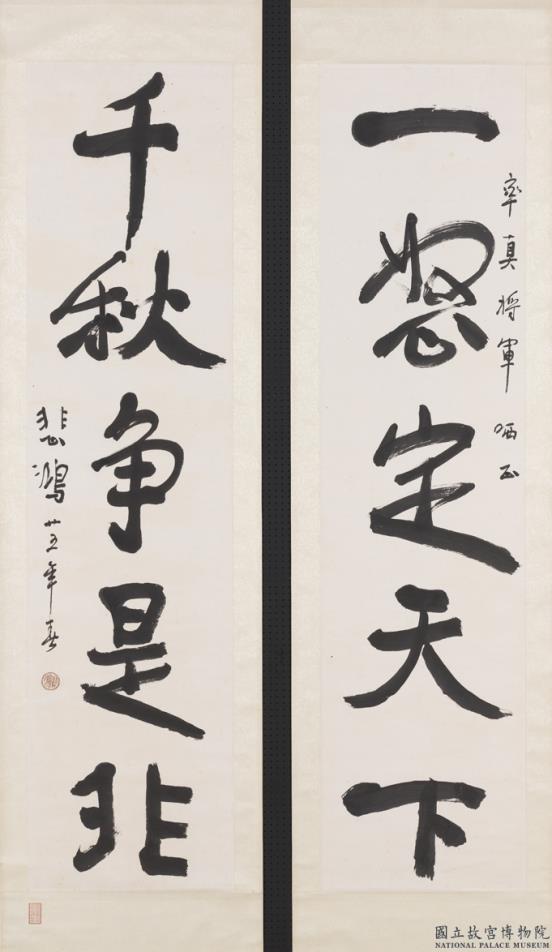 率真將軍哂正
一怒定天下
千秋爭是非
悲鴻廿五年春
國立故宮博物院
NATIONAL PALACE MUSEUM